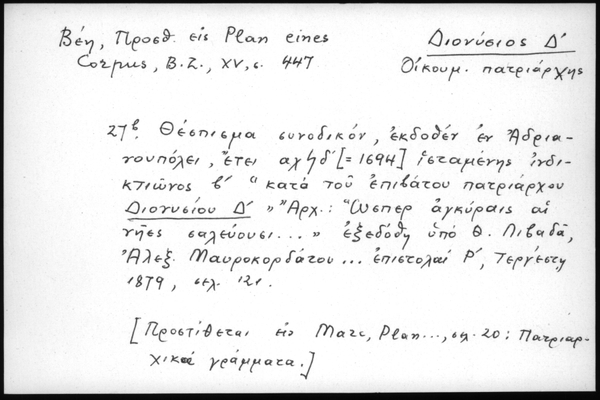 Βέη, Προσθ. εἰς Plan eines
Corpus, B.Z., XV, σ. 447
Διονύσιος Δ´
Οἰκουμ. πατριάρχης
27β. Θέσπισμα συνοδικόν, ἐκδοθέν ἐν Ἀδρια-
νουπόλει, ἔτει αχϟδ´ [= 1694] ἱσταμένης ἰνδι-
κτιῶνος β´ "κατά τοῦ ἐπιβάτου πατριάρχου
Διονυσίου Δ´ » Ἀρχ.: "Ὥσπερ ἀγκύραις αἱ
νῆες σαλεύουσι... » ἐξεδόθη ὑπό Θ. Λιβαδᾶ,
Ἀλεξ. Μαυροκορδάτου ... ἐπιστολαί Ρ´, Τεργέστη
1879, σελ. 121.
[Προστίθεται εἰς Marc, Plan..., σελ. 20: Πατριαρ-
χικά γράμματα.]